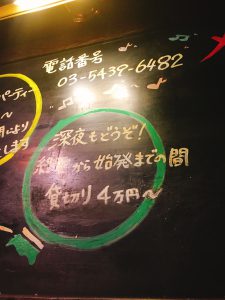 電話番号
03-5439-6482
パーティー
〜
より
します
深夜もどうぞ!
終電から始発までの間
貸切り 4万円〜